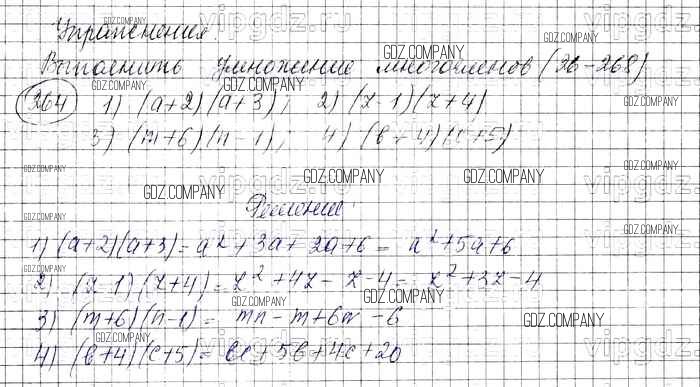 Упражнения
Выполнить умножение многочленов (26-268)
264 1) (a+2)(a+3); 2) (z-1)(z+4)
3) (m+6)(n-1); 4) (b+4)(c+5)
Решение:
1) (a+2)(a+3)=a²+3a+2a+6= a²+5a+6
2) (z-1)(z+4)=z²+4z-z-4= z²+3z-4
3) (m+6)(n-1)= mn-m+6n-6
4) (b+4)(c+5)= bc+5b+4c+20
GDZ.COMPANY
vipgdz.ru